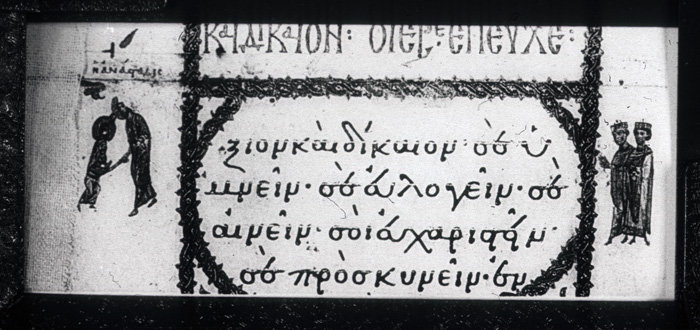 ΚΑΙ ΔΙΚΑΙΟΝ: Ο ΙΕΡΕ ΕΠΕΥΧΕ:
ξιον καὶ δίκαιον· σὲ ὑ
μνεῖν· σὲ εὐλογεῖν· σὲ
αἰνεῖν· σοὶ εὐχαριστεῖν·
σὲ προσκυνεῖν· ἐν